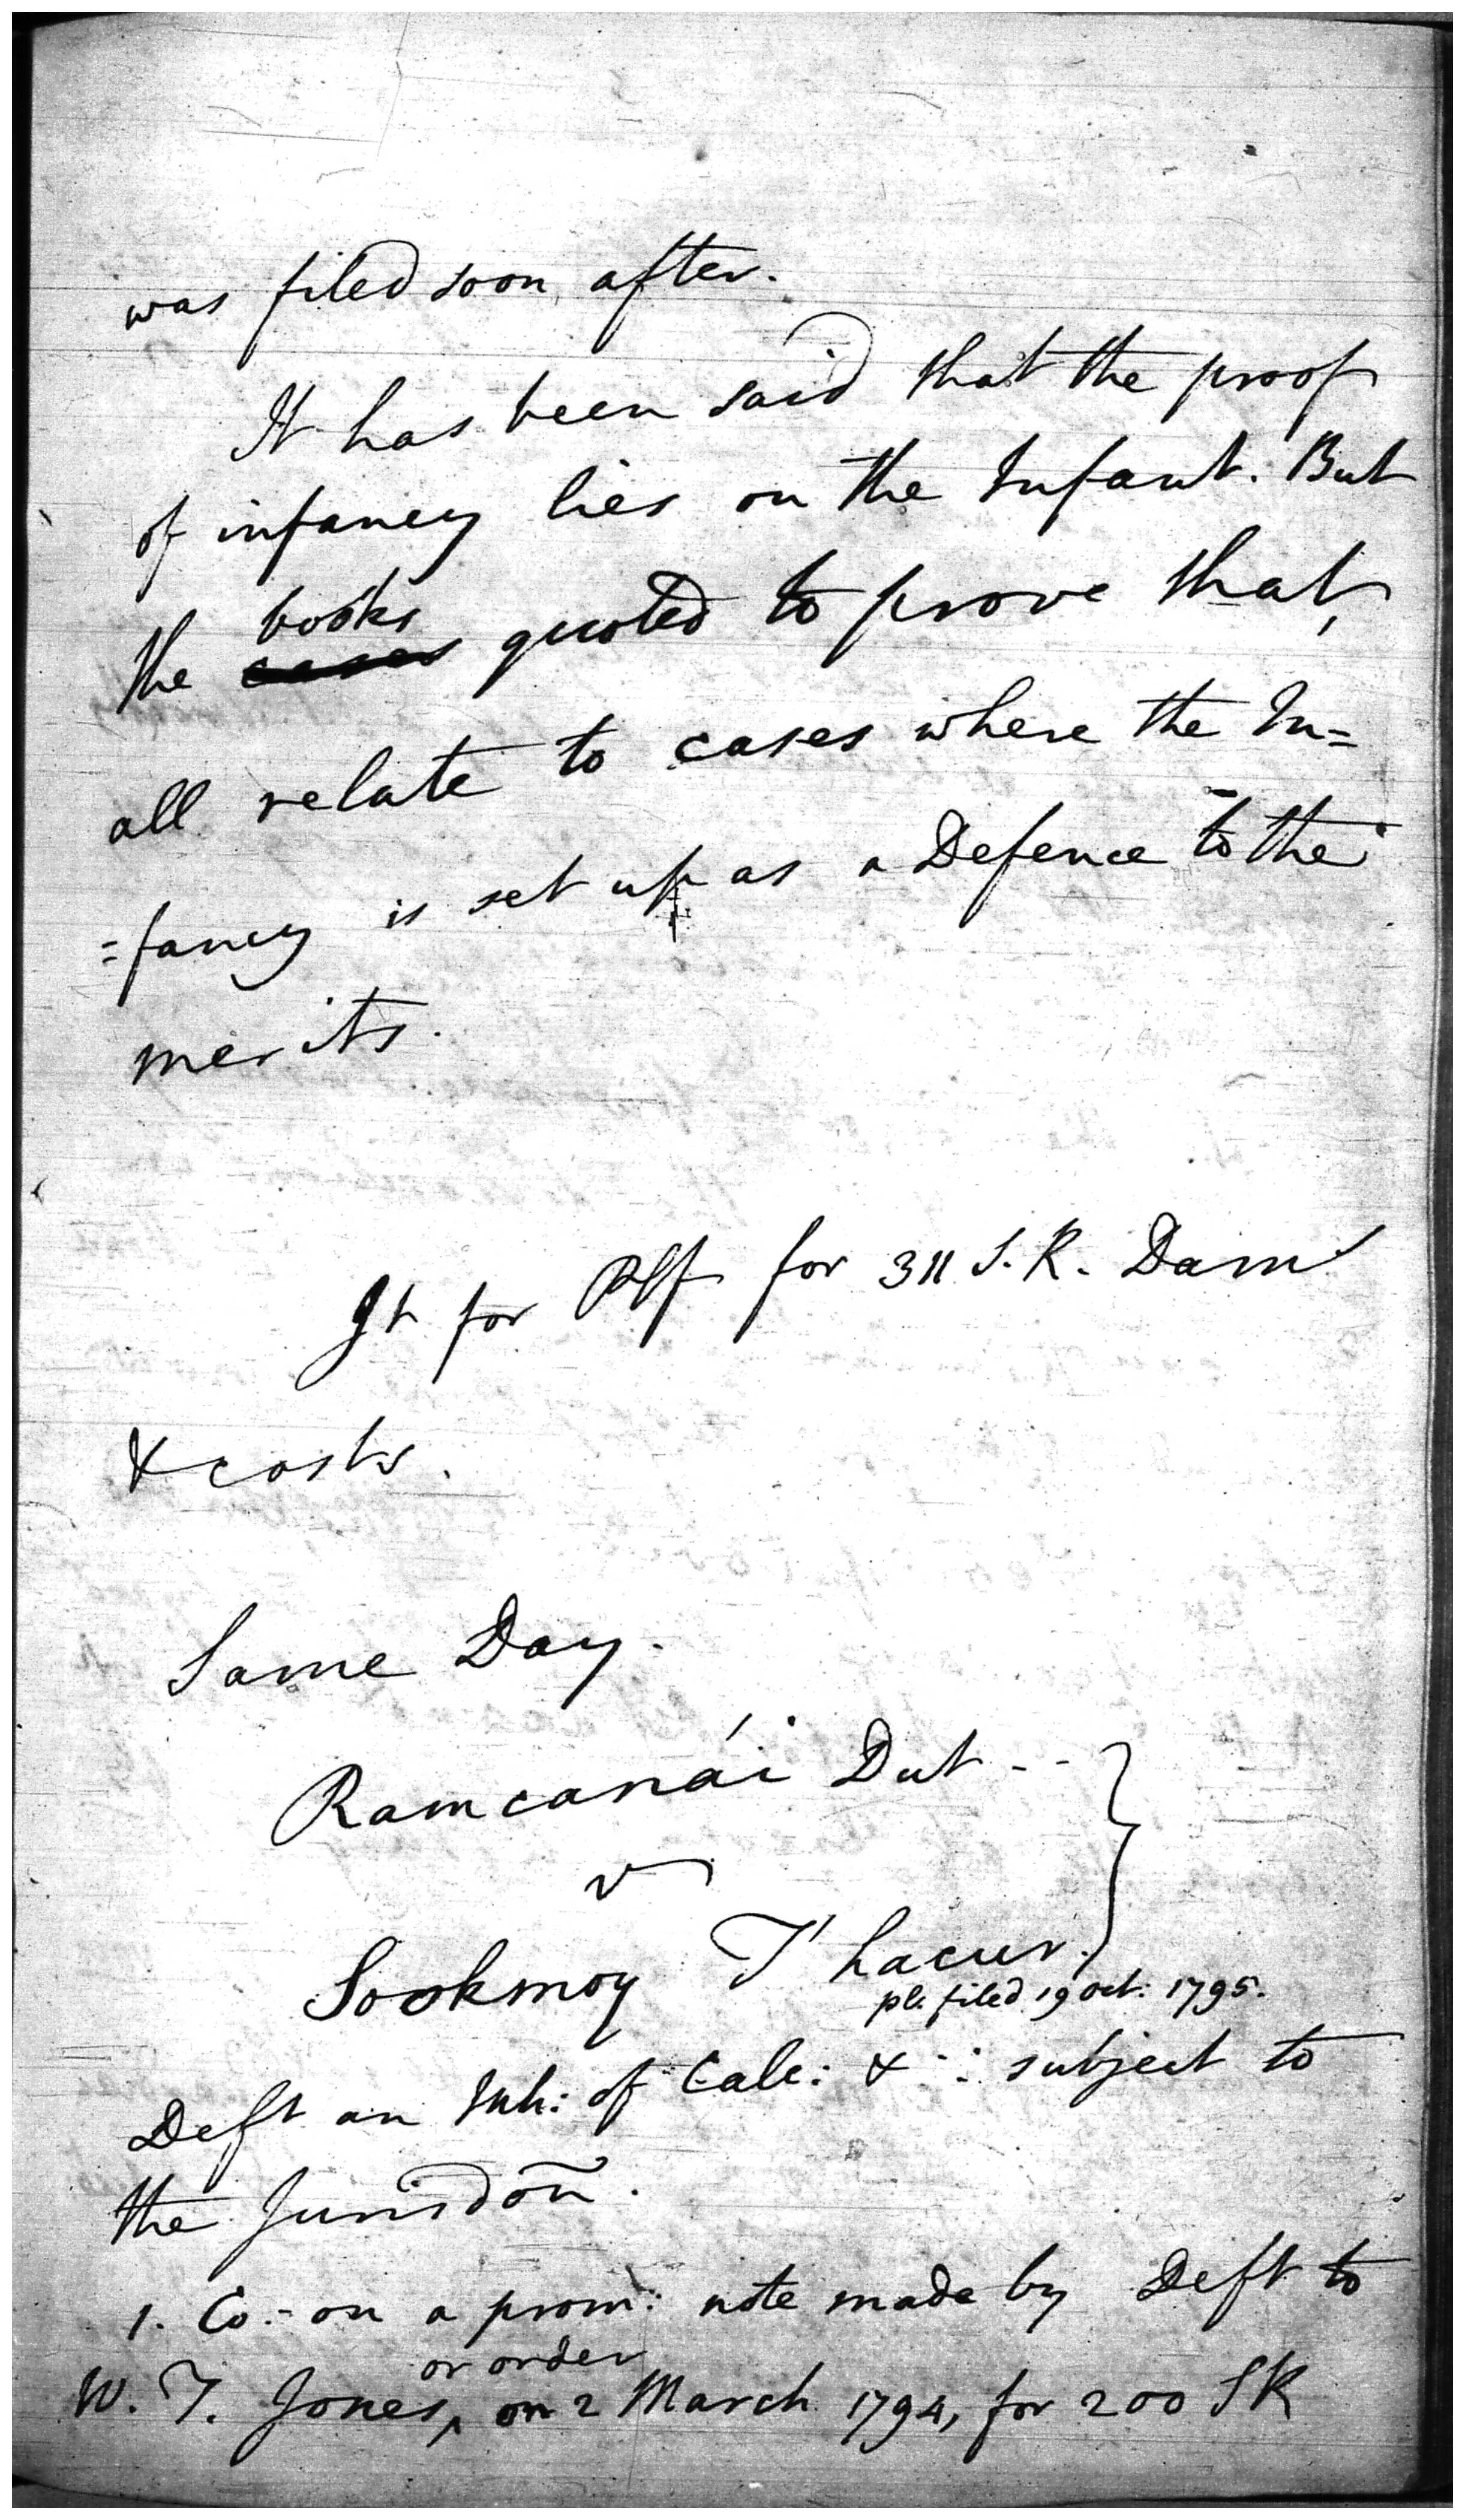 was filed soon after.
It has been said that the proof
of infancy lies on the Infant. But
books
the cases quoted to prove that,
all relate to cases where the In=
=fancy is set up as a Defence to the
merits.
Jt for Plf for 311 S.R. Dam
& costs.
Same Day.
Ramcanái Dut --
v
Sookmoy Thacur.
pl. filed 19 Oct: 1795.
Deft an Inh: of Calc: & :: subject to
the Jurisdon.
1. Co:- on a prom: note made by Deft to
or order
W. T. Jones, on 2 March 1794, for 200 SR